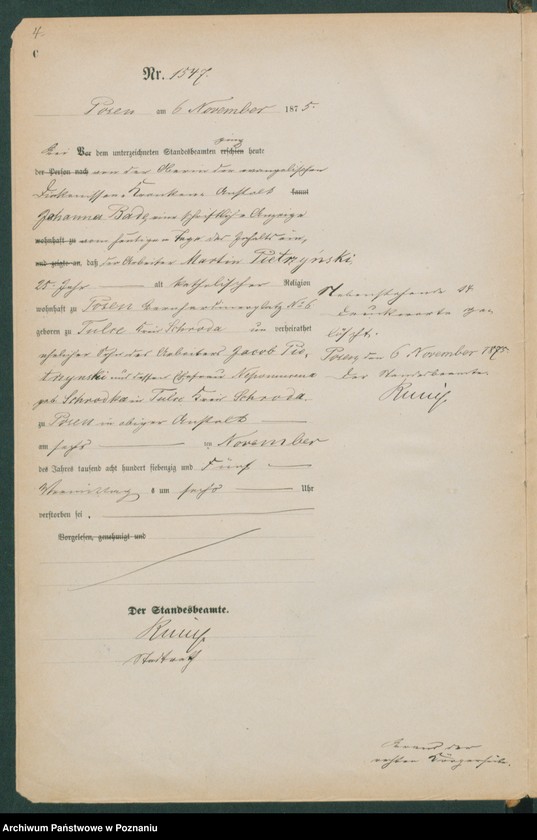 4.
C
Nr. 1547.
Posen am 6 November 1875.
ging
Bei Vor dem unterzeichneten Standesbeamten erschien heute
der Person nach von der Oberin der evangelischen
Diakonissen Kranken Anstalt kannt
Johanna Bade eine schriftliche Anzeige
wohnhaft zu vom heutigen Tage des Inhalts ein,
und zeigte an, daß der Arbeiter Martin Pietrzyński,
25 Jahr alt katholischer Religion
wohnhaft zu Posen Bernhardinerplatz No 6
geboren zu Tulce Kreis Schroda un verheirathet
ehelicher Sohn des Arbeiters Jacob Pie,
trzynski und dessen Ehefrau Nepomucena
geb. Schrodka in Tulce Kreis Schroda.
zu Posen in obiger Anstalt
am sechs ten November
des Jahres tausend acht hundert siebenzig und fünf
Vormittag s um sechs Uhr
verstorben sei.
Vorgelesen, genehmigt und
Nebenstehende 14
Druckworte ge,
löscht.
Posen den 6 November 1875.
Der Standesbeamte.
Der Standesbeamte.
Stadtrath
rechten Körperseite.
Archiwum Państwowe w Poznaniu